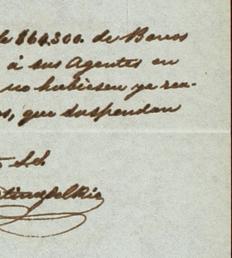 de $64,300. de Bonos
á sus Agentes en
no hubiesen ya rea-
os, que suspendan
S.S.